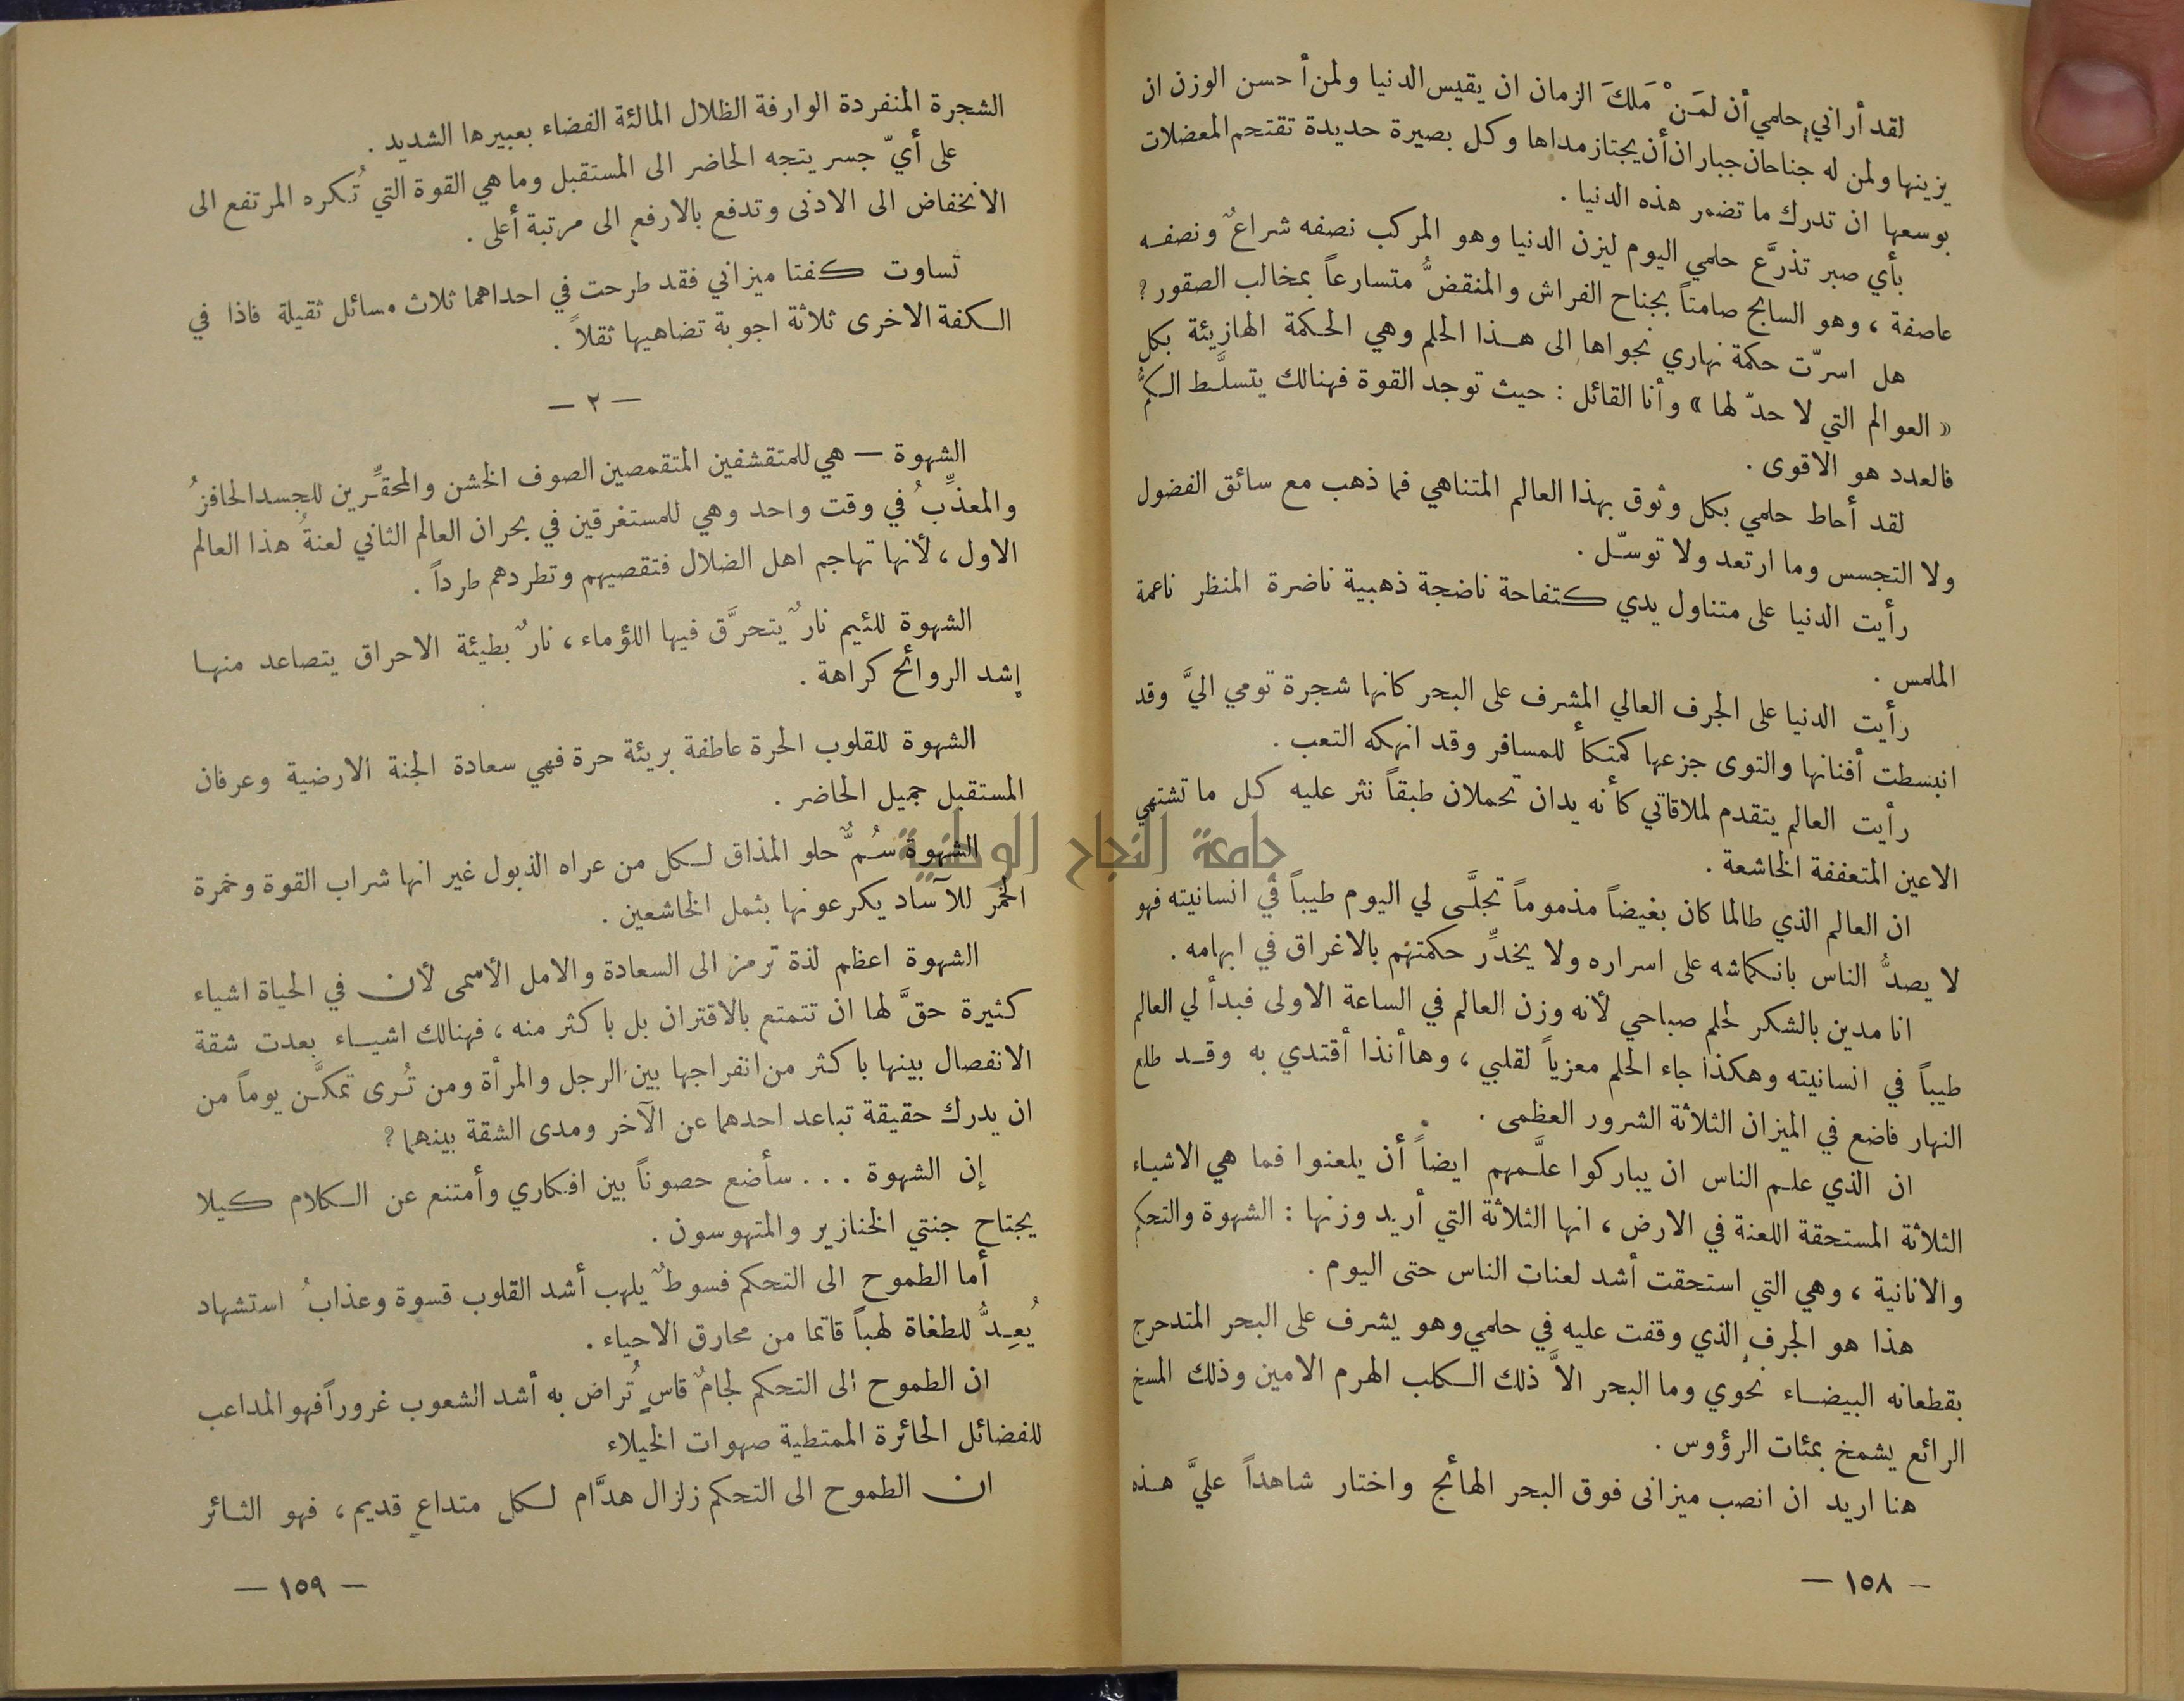 لقد أراني حلمي أن لمَنْ مَلكَ الزمان ان يقيس الدنيا ولمن أحسن الوزن ان
يزينها ولمن له جناحان جباران أن يجتاز مداها وكل بصيرة حديدة تقتحم المعضلات
بوسعها ان تدرك ما تضمر هذه الدنيا .
بأي صبر تذرَّع حلمي اليوم ليزن الدنيا وهو المركب نصفه شراعٌ ونصفه
عاصفة ، وهو السابح صامتاً بجناح الفراش والمنقضُّ متسارعاً بمخالب الصقور ؟
هل اسرّت حكمة نهاري نجواها الى هذا الحلم وهي الحكمة الهازيئة بكل
« العوالم التي لا حدّ لها » وأنا القائل : حيث توجد القوة فهنالك يتسلَّط الكمُّ
فالعدد هو الاقوى .
لقد أحاط حلمي بكل وثوق بهذا العالم المتناهي فما ذهب مع سائق الفضول
ولا التجسس وما ارتعد ولا توسّل .
رأيت الدنيا على متناول يدي كتفاحة ناضجة ذهبية ناضرة المنظر ناعمة
الملمس .
رأيت الدنيا على الجرف العالي المشرف على البحر كانها شجرة تومي اليَّ وقد
انبسطت أفنانها والتوى جزعها كمتكأ للمسافر وقد انهكه التعب .
رأيت العالم يتقدم لملاقاتي كأنه يدان تحملان طبقاً نثر عليه كل ما تشتهي
الاعين المتعففة الخاشعة .
ان العالم الذي طالما كان بغيضاً مذموماً تجلَّى لي اليوم طيباً في انسانيته فهو
لا يصدُّ الناس بانكماشه على اسراره ولا يخدِّر حكمتهم بالاغراق في ابهامه .
انا مدين بالشكر لحلم صباحي لأنه وزن العالم في الساعة الاولى فبدأ لي العالم
طيباً في انسانيته وهكذا جاء الحلم معزياً لقلبي ، وها أنذا أقتدي به وقد طلع
النهار فاضع في الميزان الثلاثة الشرور العظمى .
ان الذي علم الناس ان يباركوا علَّمهم ايضاً أن يلعنوا فما هي الاشياء
الثلاثة المستحقة اللعنة في الارض ، انها الثلاثة التي أريد وزنها : الشهوة والتحكم
والانانية ، وهي التي استحقت أشد لعنات الناس حتى اليوم .
هذا هو الجرف الذي وقفت عليه في حلمي وهو يشرف على البحر المتدحرج
بقطعانه البيضاء نحوي وما البحر الاَّ ذلك الكلب الهرم الامين وذلك المسخ
الرائع يشمخ بمئات الرؤوس .
هنا اريد ان انصب ميزانى فوق البحر الهائج واختار شاهداً عليَّ هذه
— ١٥٨ —
الشجرة المنفردة الوارفة الظلال المالئة الفضاء بعبيرها الشديد .
على أيّ جسر يتجه الحاضر الى المستقبل وما هي القوة التي تُكره المرتفع الى
الانخفاض الى الادنى وتدفع بالارفع الى مرتبة أعلى .
تساوت كفتا ميزاني فقد طرحت في احداهما ثلاث مسائل ثقيلة فاذا في
الكفة الاخرى ثلاثة اجوبة تضاهيها ثقلاً .
— ٢ —
الشهوة — هي للمتقشفين المتقمصين الصوف الخشن والمحقِّرين للجسد الحافزُ
والمعذِّبُ في وقت واحد وهي للمستغرقين في بحران العالم الثاني لعنةُ هذا العالم
الاول ، لأنها تهاجم اهل الضلال فتقصيهم وتطردهم طرداً .
الشهوة للئيم نارٌ يتحرَّق فيها اللؤماء ، نارٌ بطيئة الاحراق يتصاعد منها
إشد الروائح كراهة .
الشهوة للقلوب الحرة عاطفة بريئة حرة فهي سعادة الجنة الارضية وعرفان
المستقبل جميل الحاضر .
الشهوة سُمٌّ حلو المذاق لكل من عراه الذبول غير انها شراب القوة وخمرة
الخمر للآساد يكرعونها بثمل الخاشعين .
جامعة النجاح الوطنية
الشهوة اعظم لذة ترمز الى السعادة والامل الأسمى لأن في الحياة اشياء
كثيرة حقَّ لها ان تتمتع بالاقتران بل باكثر منه ، فهنالك اشياء بعدت شقة
الانفصال بينها باكثر من انفراجها بين الرجل والمرأة ومن تُرى تمكَّن يوماً من
ان يدرك حقيقة تباعد احدهما عن الآخر ومدى الشقة بينهما ؟
إن الشهوة . . . سأضع حصوناً بين افكاري وأمتنع عن الكلام كيلا
يجتاح جنتي الخنازير والمتهوسون .
أما الطموح الى التحكم فسوطٌ يلهب أشد القلوب قسوة وعذابُ استشهاد
يُعِدُّ للطغاة لهباً قاتما من محارق الاحياء .
ان الطموح الى التحكم لجامٌ قاسٍ تُراض به أشد الشعوب غروراً فهو المداعب
للفضائل الحائرة الممتطية صهوات الخيلاء
ان الطموح الى التحكم زلزال هدَّام لكل متداعٍ قديم ، فهو الثائر
— ١٥٩ —